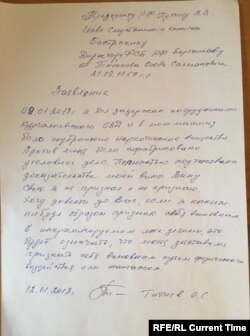 Президенту РФ Путину В.В
Главе Следственного комитета
Бастрыкину
Директору ФСБ РФ Бортникову
от Титиева Оюба Салмановича
24.08.1957 г.
Заявление
09.01.2018г. я был задержан сотрудниками
Курчалоевского ОВД и в мою машину
было подброшено наркотическое вещество
Против меня было сфабриковано
уголовное дело. Полностью подтасованы
доказательства моей вины. Вину
Свою я не признал и не признаю.
Хочу довести до Вас, если я каким
нибудь образом признаю себя виновным
в инкриминируемом мне деянии, это
будет означать, что меня заставили
признать себя виновным путем физического
воздействия или шантажом.
12.01.2018. Титиев О.С.
RFE/RL Current Time